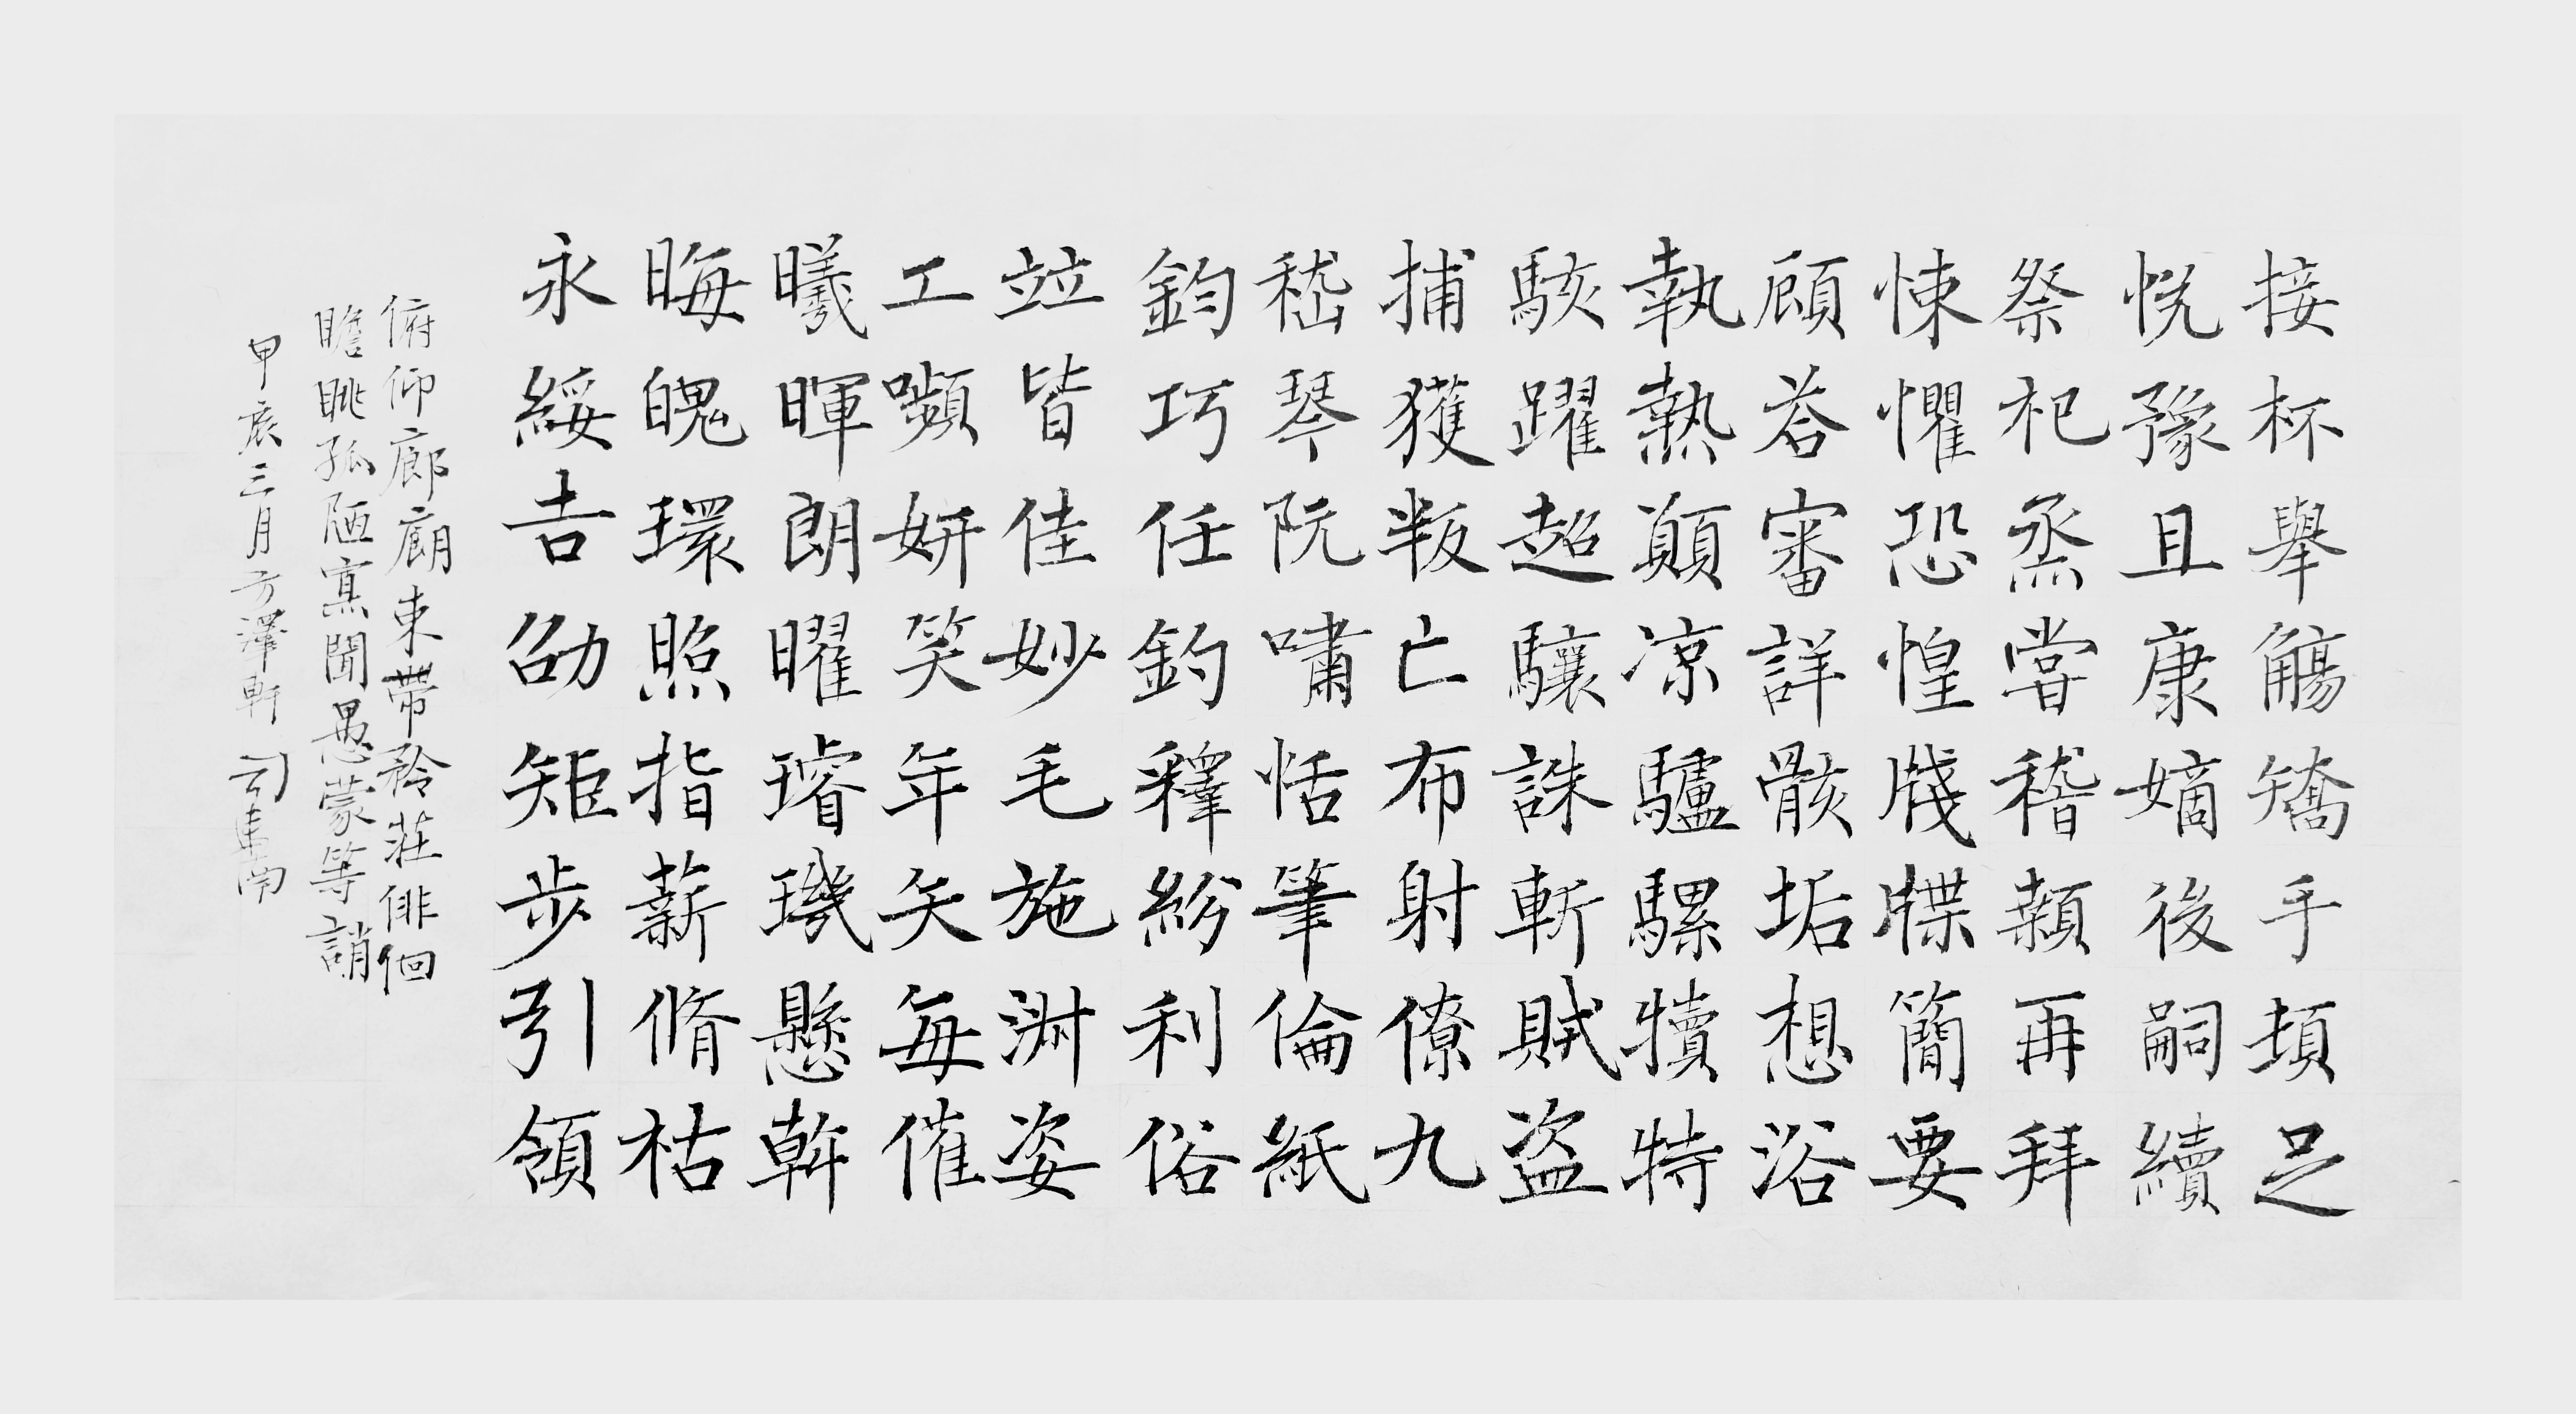 接杯舉觴矯手頓足
悅豫且康嫡後嗣續
祭祀烝嘗稽顙再拜
悚懼恐惶牋牒簡要
顧荅審詳骸垢想浴
執熱願凉驢騾犢特
駭躍超驤誅斬賊盜
捕獲叛亡布射僚九
嵇琴阮嘯恬筆倫紙
鈞巧任釣釋紛利俗
竝皆佳妙毛施淑姿
工嚬妍笑年矢每催
曦暉朗曜璿璣懸斡
晦魄環照指薪脩祜
永綏吉劭矩步引領
俯仰廊廟束帶矜莊俳佪
瞻眺孤陋寡聞愚蒙等誚
甲辰三月方澤軒 司馬南